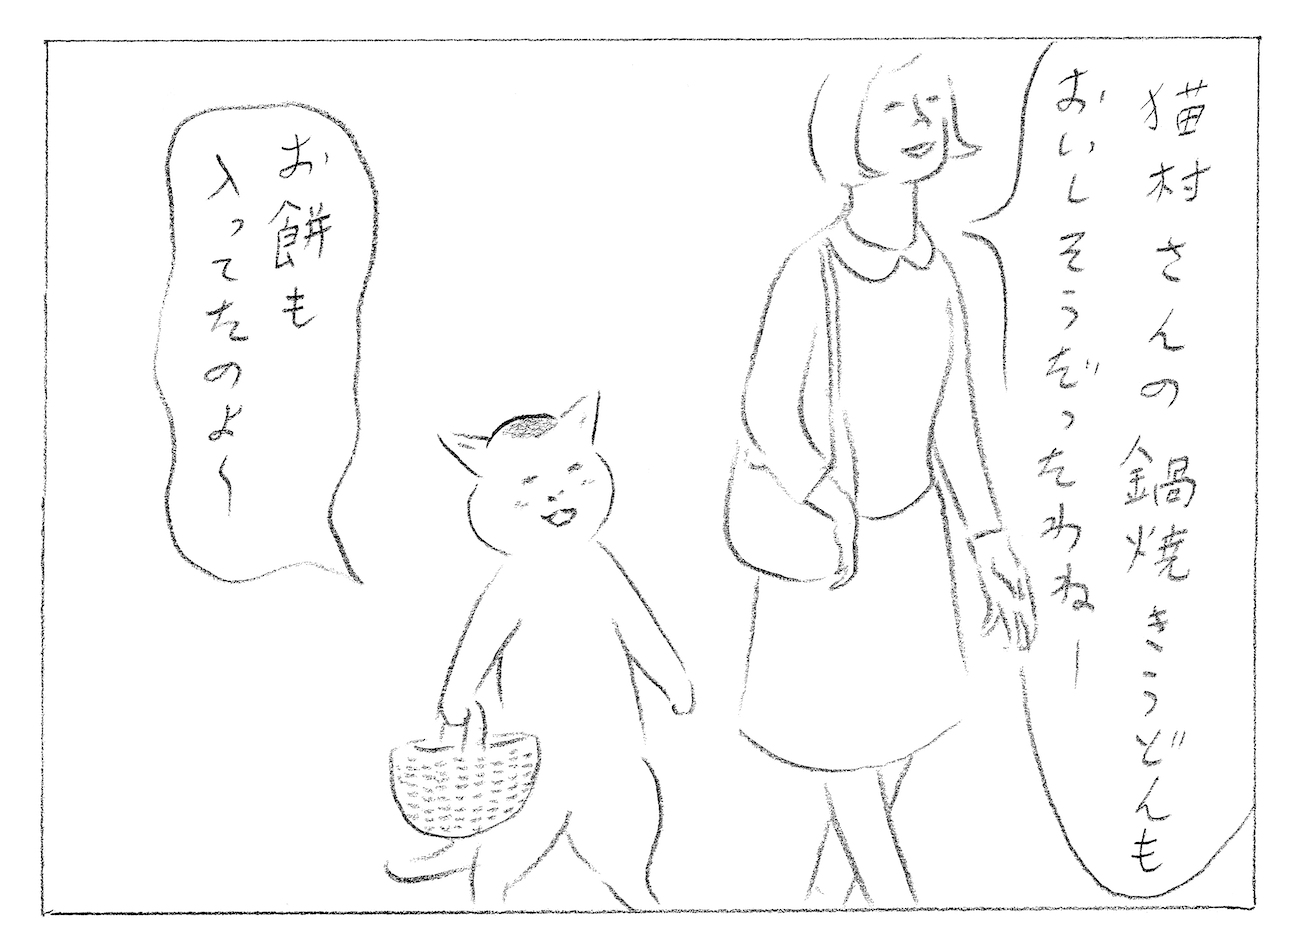 猫村さんの鍋焼きうどんも
おいしそうだったわねー
お餅も
入ってたのよ〜